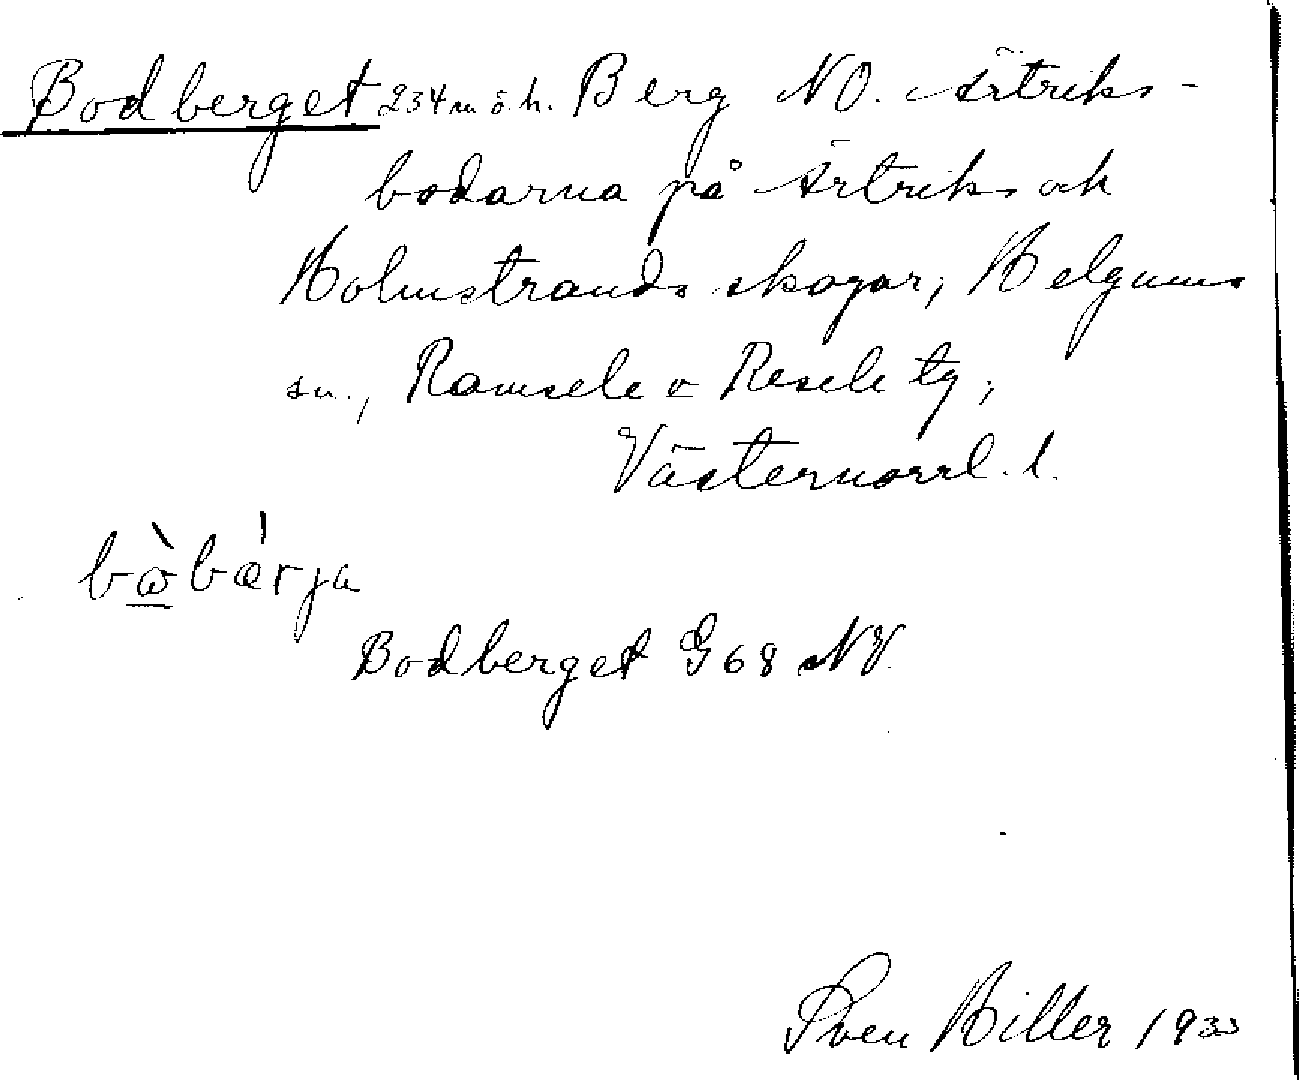 Bodberget 234 m ö. h. Berg NO. Ärtriks-
bodarna på Ärtriks och
Holmstrands skogar, Helgums
sn., Ramsele o Resele tg,
Västernorrl. l.
bὼbǽrja
Bodberget G 68 NV.
Sven Hiller 1933